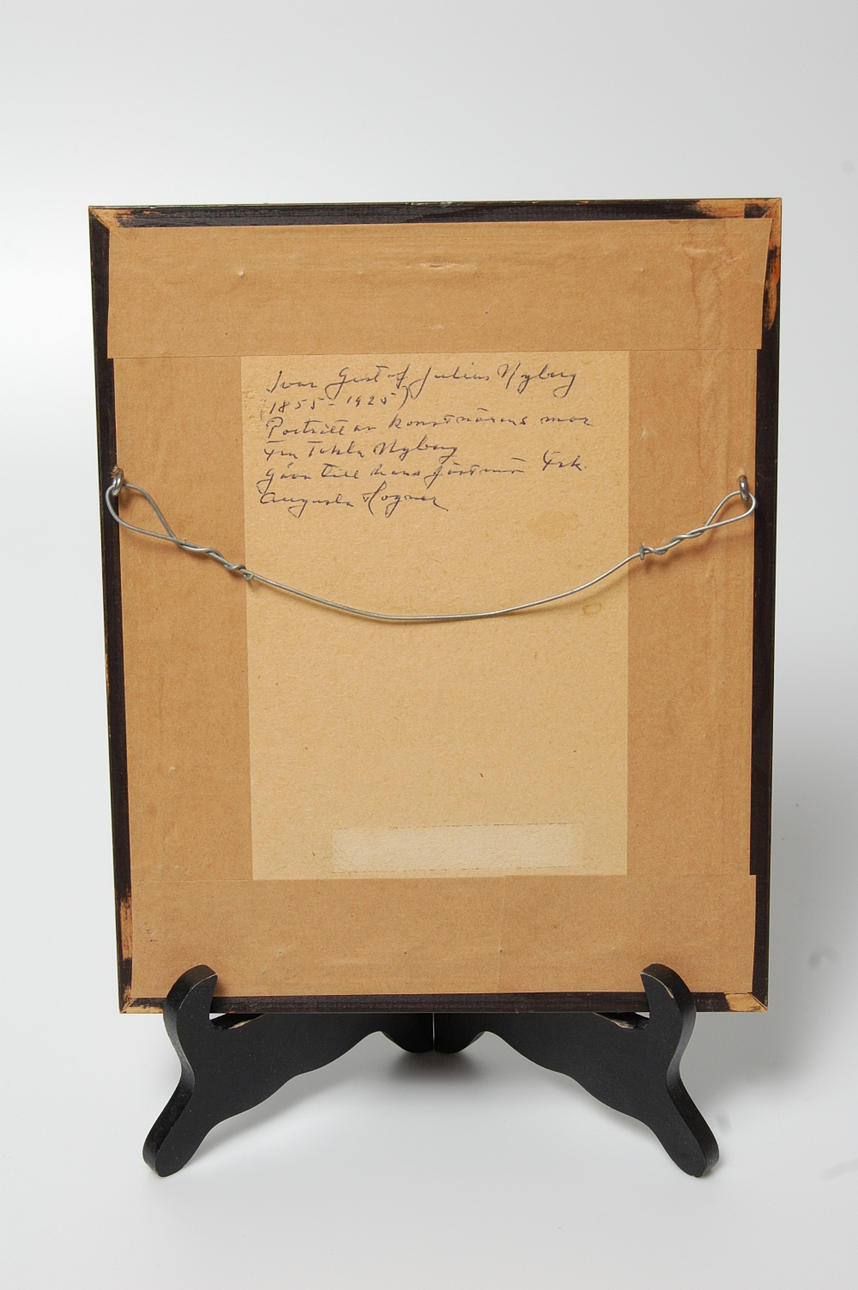 Ivar Gustaf Julius Nyberg
(1855-1925)
Porträtt av konstnärens mor
Fru Tekla Nyberg
Gåva till hans fästmö Frk.
Augusta